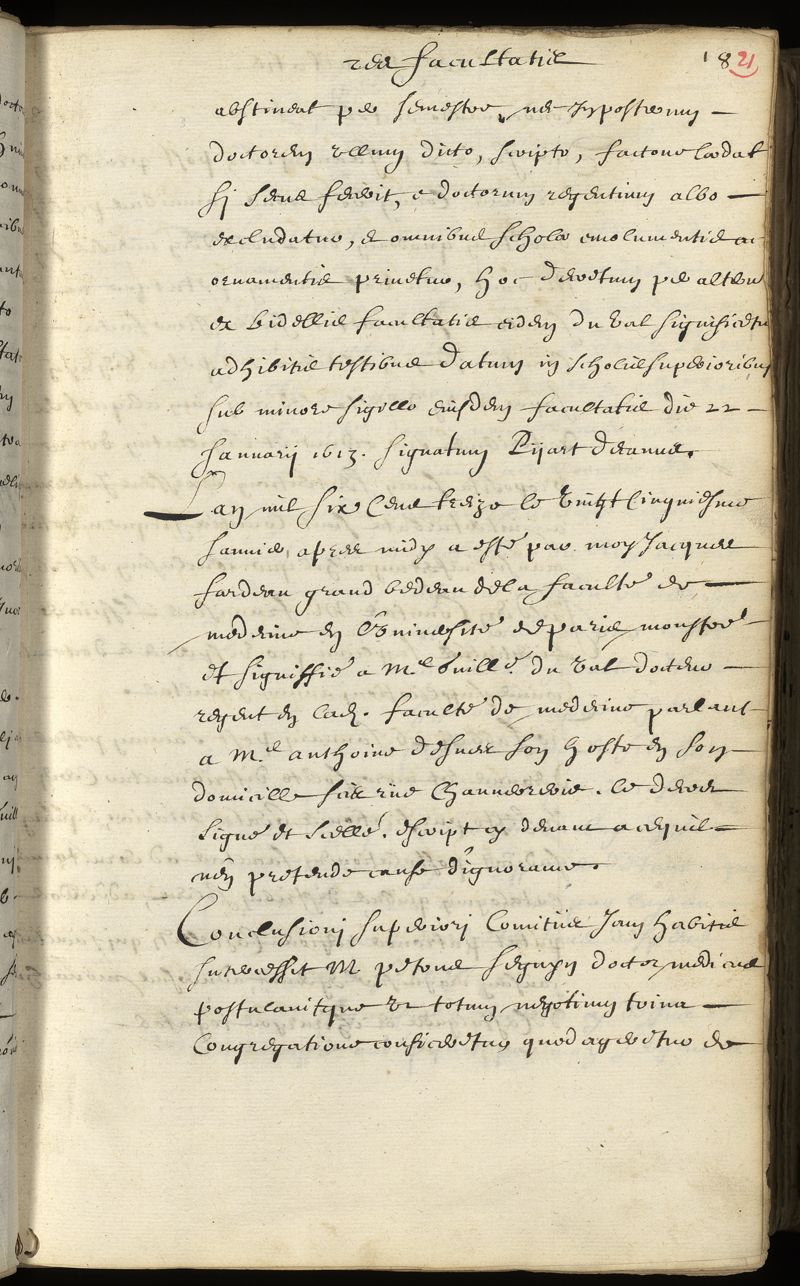 res facultatis 18 21
abstineat per semestre, nec in posterum
doctorem ullum dicto, scripto, factove lædat
si secus fecerit, e doctorum regentium albo
excludatur, et omnibus scholæ emolumentis ac
ornamentis privetur, hoc decretum per alterum
ex bidellis facultatis eidem du Val significetur
adhibitis testibus datum in scholis superioribus
sub minore sigillo eiusdem facultatis die 22
Januarij 1613. signatum Pijart decanus.
Lan mil six cens treize le vingt cinquiesme
Januier apres midy a esté par moy Jacques
fardeau grand bedeau de la faculté de
medecine en luniuersité de paris monstré
et signiffié a Me Guille. du Val docteur
regent en lad. faculté de medecine parlant
a Me anthoine son hoste en son
domicille size rüe Channererie. le decret
signé et scellé. escript cy deuant a ce quil
nen pretende cause dignorance.
Conclusioni superiori Comitiis Jam habitis
successit M petrus Seguyn doctor medicus
postulauitque ut totum negotium trina
Congregatione conficeretur quod ageretur de